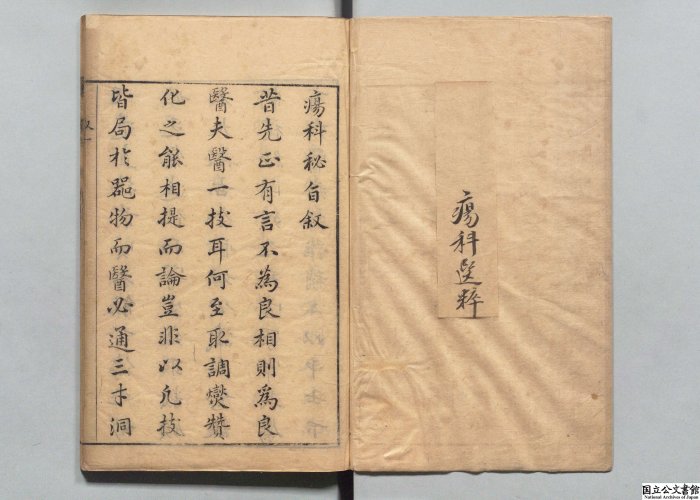 瘍科選粹
瘍科秘旨叙
昔先正有言不為良相則為良
醫夫醫一技耳何至取調爕贊
化之能相提而論豈非以凡技
皆局於器物而醫必通三才洞
国立公文書館
National Archives of Japan